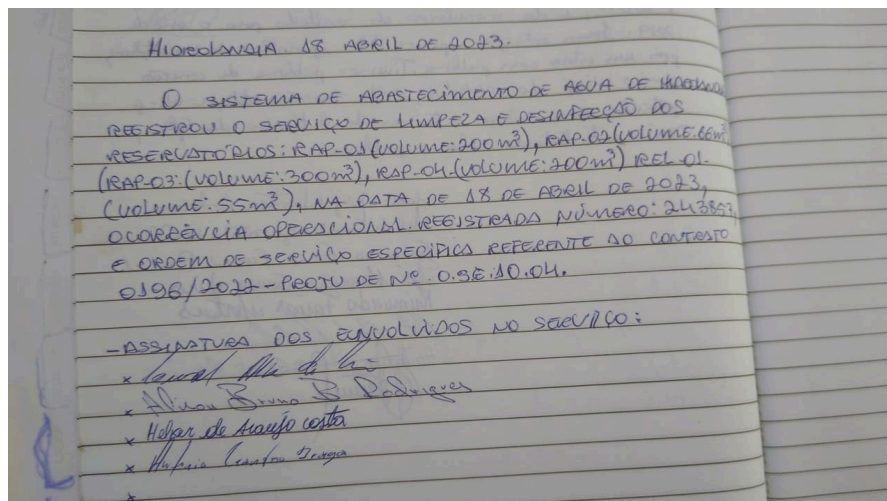 HIDROLANDIA 18 ABRIL DE 2023.
O SISTEMA DE ABASTECIMENTO DE AGUA DE
REGISTROU O SERVIÇO DE LIMPEZA E DESINFECÇÃO DOS
RESERVATÓRIOS: RAP-01 (VOLUME: 200m³), RAP-02 (VOLUME: 66m³
(RAP-03: (VOLUME: 300m³), RAP-04. (VOLUME: 200m³) REL-01.
(VOLUME: 55m³), NA DATA DE 18 DE ABRIL DE 2023,
OCORRÊNCIA OPERACIONAL. REGISTRADA NÚMERO:
E ORDEM DE SERVIÇO ESPECIFICA REFERENTE AO CONTRATO
0196/2022 - PROJU DE Nº 0.SE.10.04.
- ASSINATURA DOS ENVOLVIDOS NO SERVIÇO:
x
x Bruno B Rodrigues
x Helgar de Araújo costa
x
x